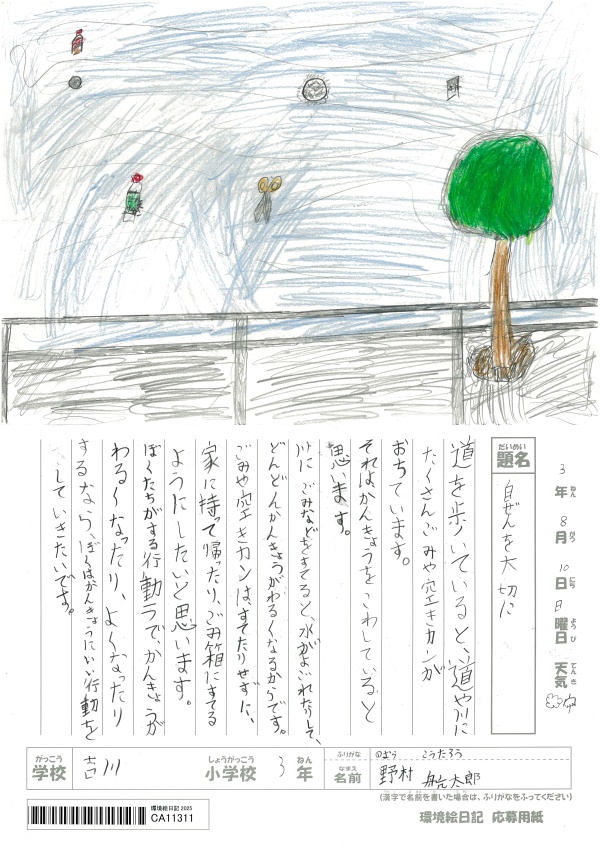 3年 8月 10日 日曜日 天気
だいめい
題名
自ぜんを大切に
道を歩いていると、道や川に
たくさんごみや空きカンが
おちています。
それはかんきょうをこわしていると
思います。
川にごみなどをすてると、水がよごれたりして、
どんどんかんきょうがわるくなるからです。
ごみや空きカンは、すてたりせずに、
家に持って帰ったり、ごみ箱にすてる
ようにしたいと思います。
ぼくたちがする行動うで、かんきょうが
わるくなったり、よくなったり
するなら、ぼくはかんきょうにいい行動を
していきたいです。
がっこう
学校
吉川
しょうがっこう
小学校
3
ねん
年
ふりがな
のむら こうたろう
なまえ
名前
野村 航太郎
(漢字で名前を書いた場合は、ふりがなをふってください)
環境絵日記 2025
CA11311
環境絵日記 応募用紙